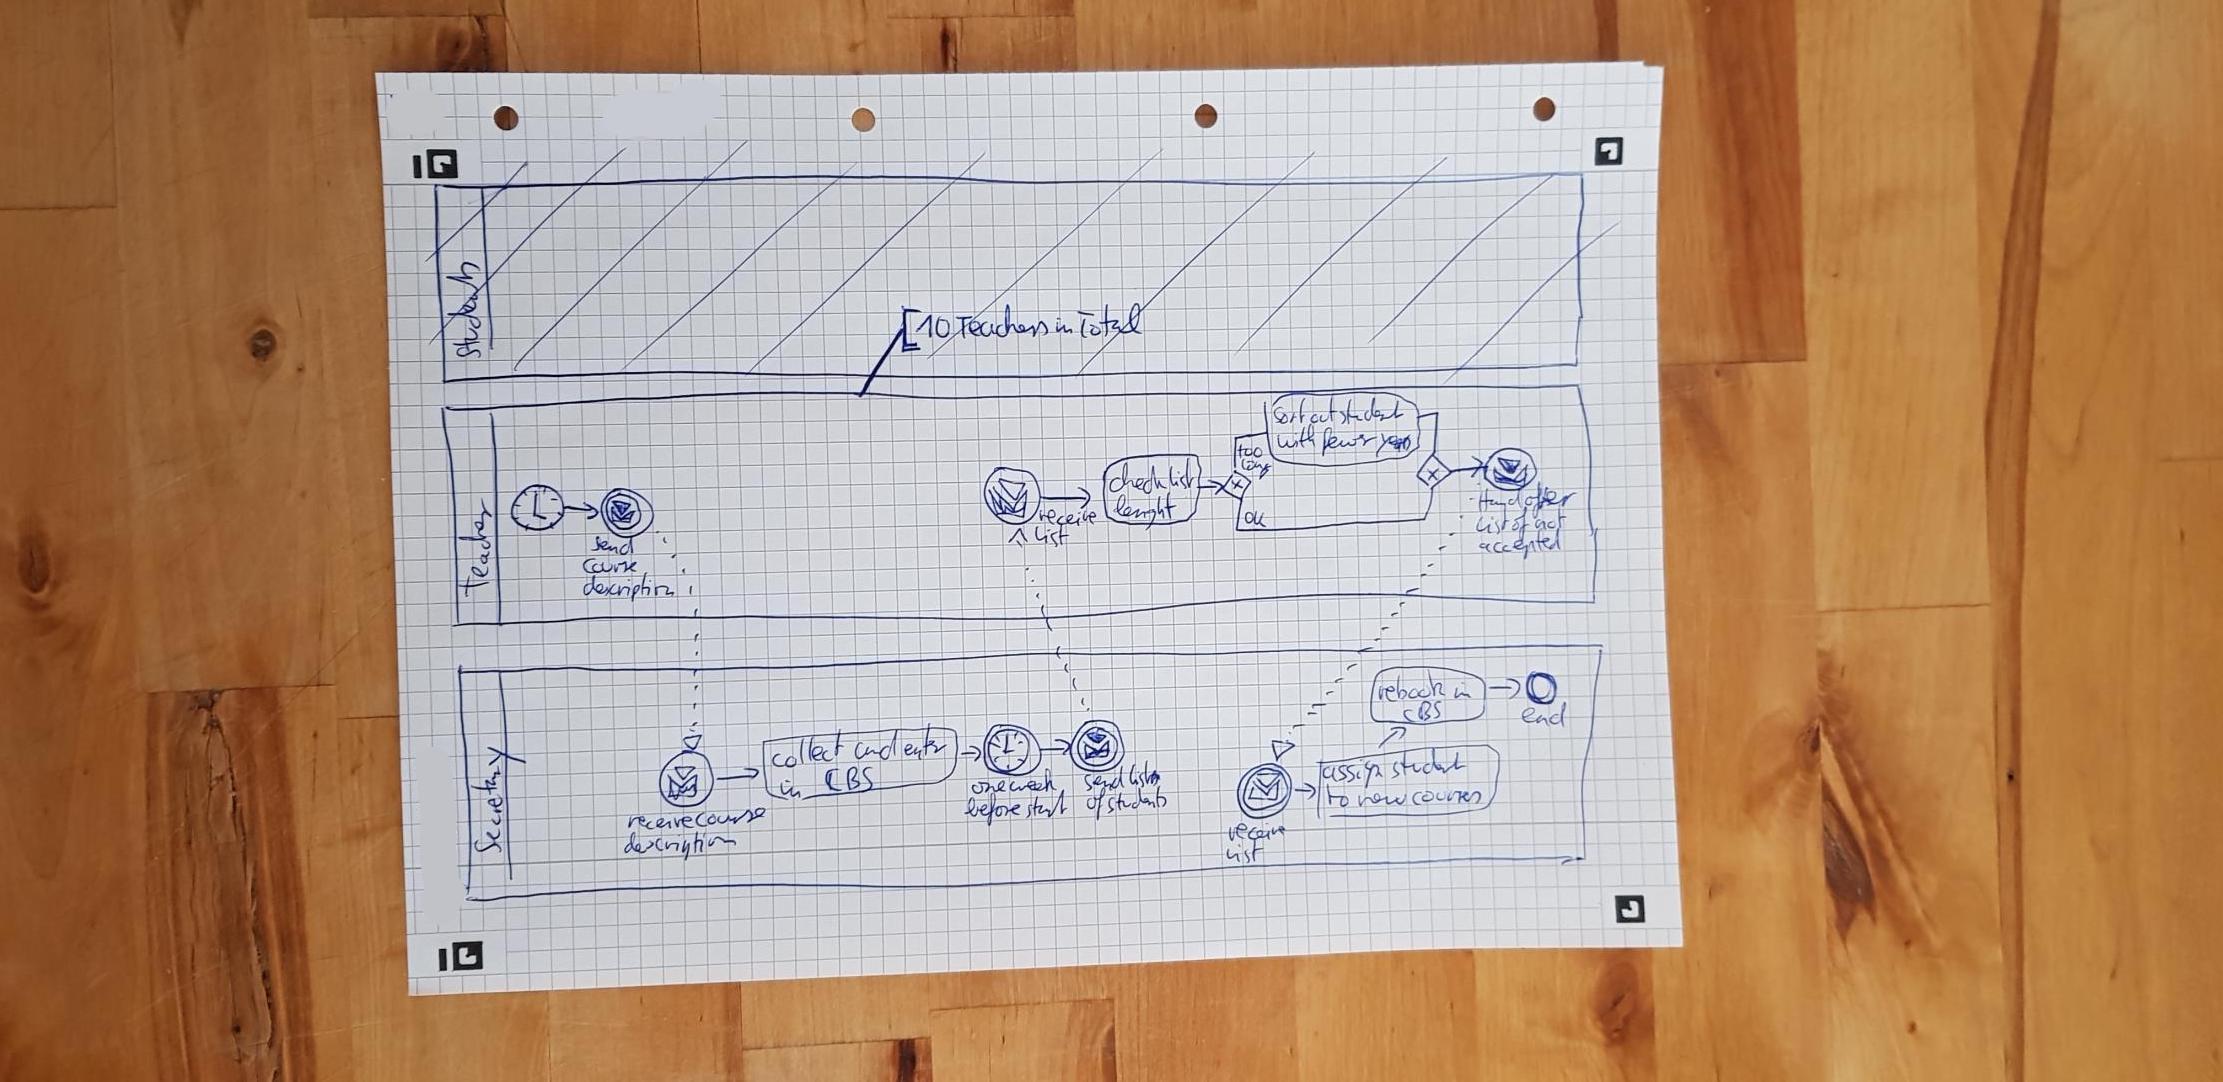 Students
[10 Teachers in Total
Teacher
send
course
description
receive
list
check list
lenght
too
long
ok
sort out student
with fewer
Hand over
List of not
accepted
Secretary
receive course
description
collect and enter
in CBS
one week
before start
send lists
of students
receive
list
assign student
to new courses
rebook in
CBS
end